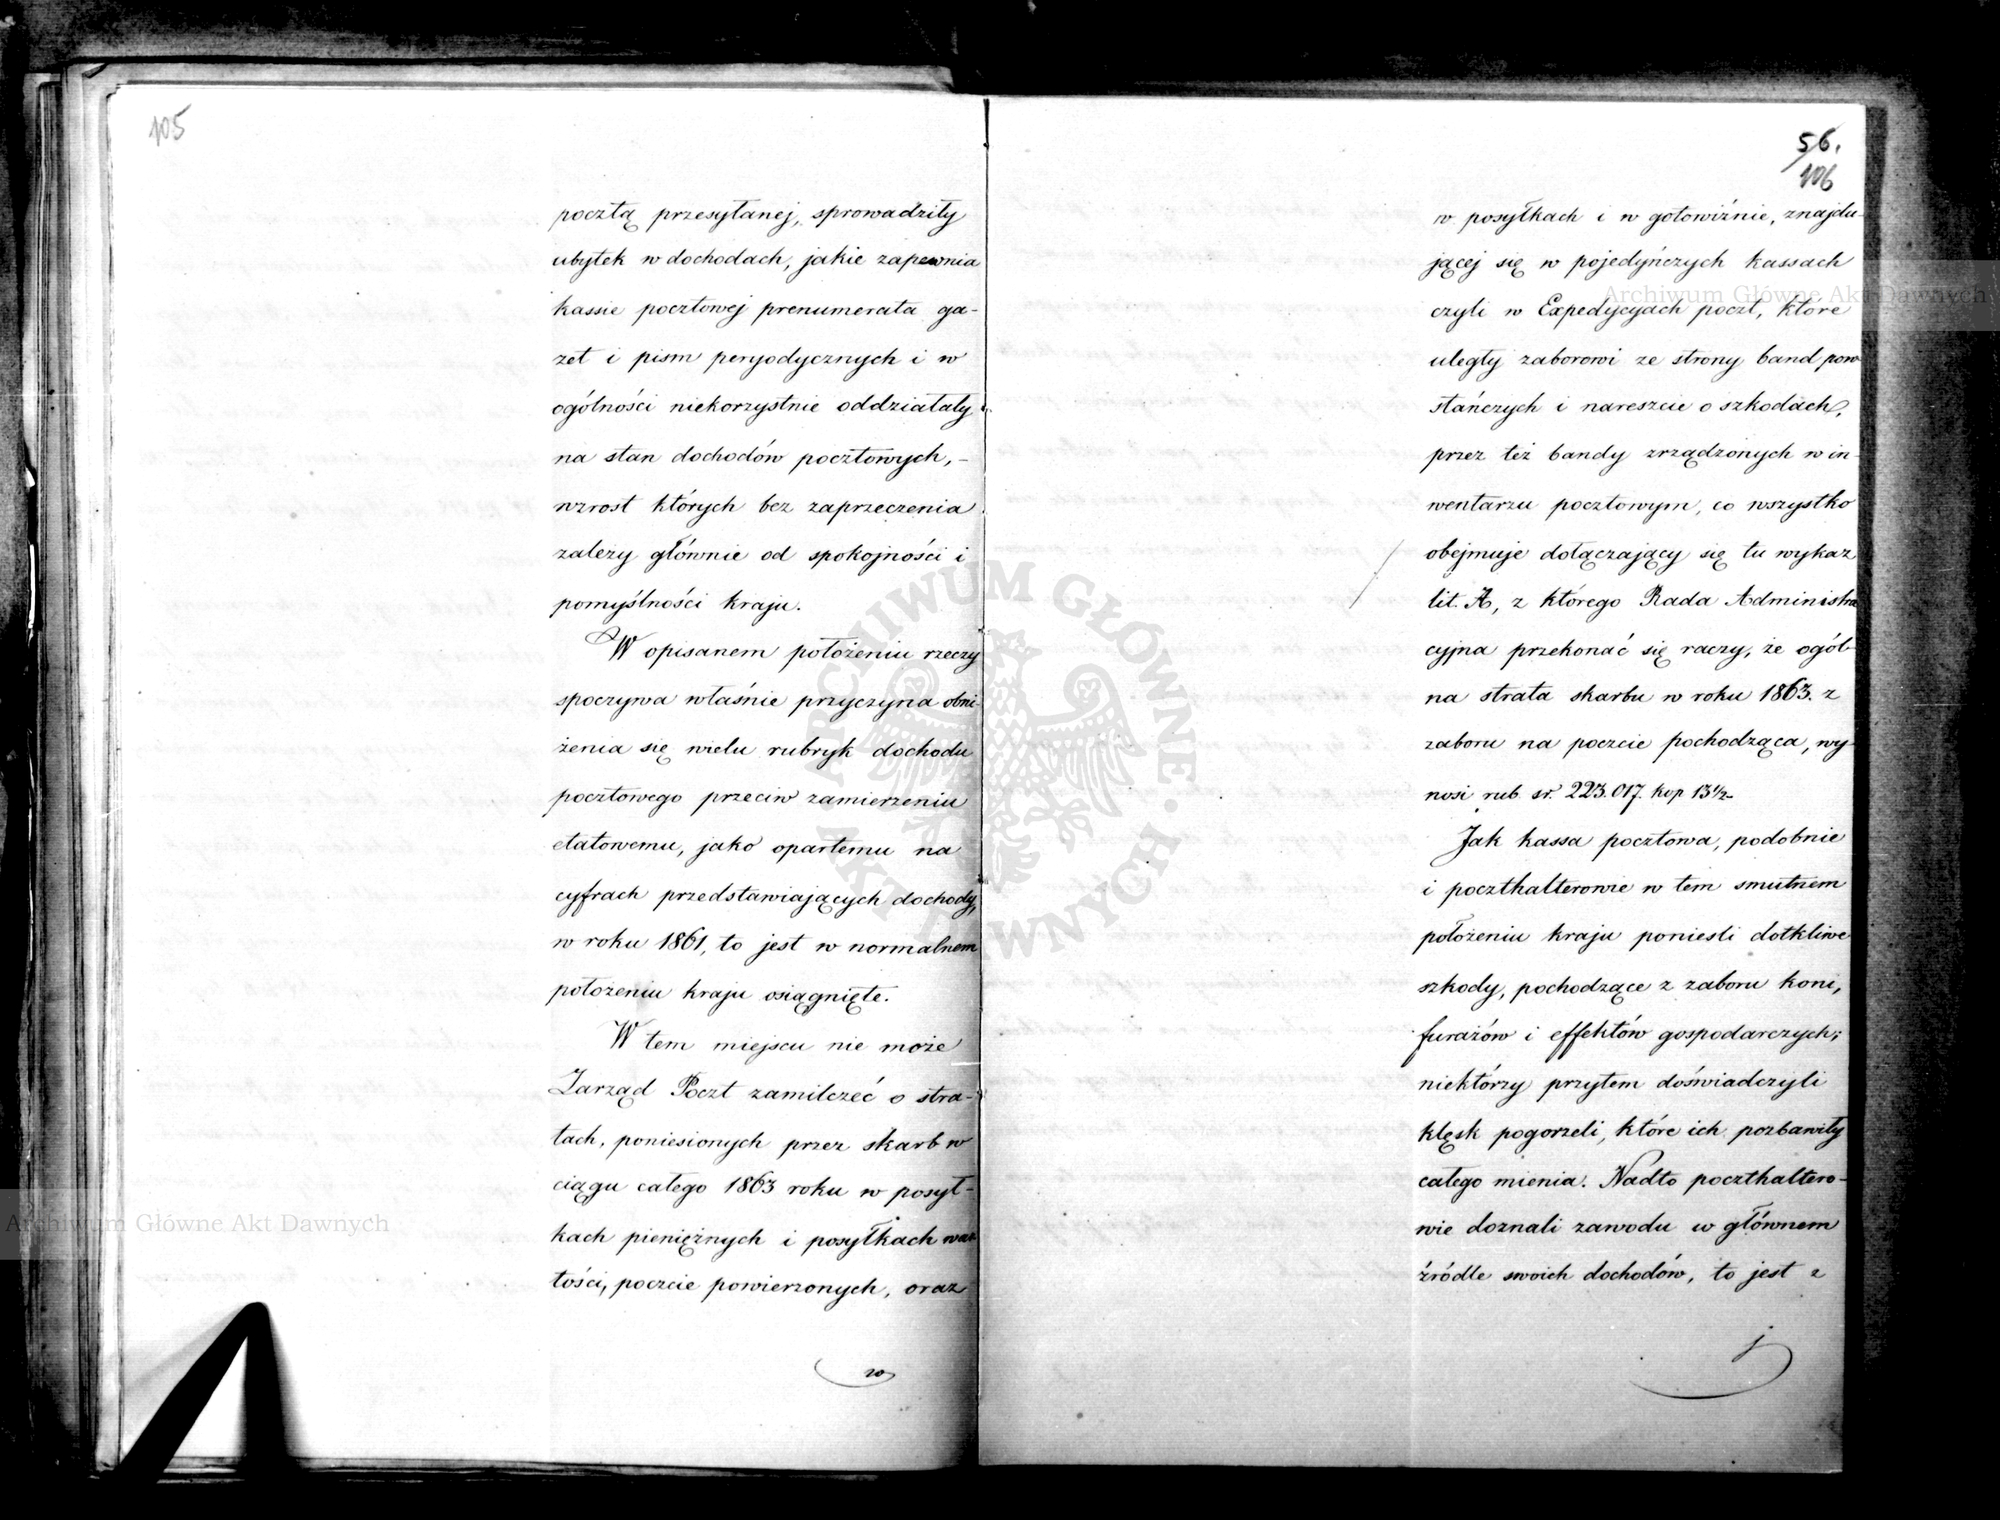 105
pocztą przesyłanej, sprowadziły
ubytek w dochodach, jakie zapewnia
kassie pocztowej prenumerata ga-
zet i pism peryodycznych i w
ogólności niekorzystnie oddziałały
na stan dochodów pocztowych, -
wzrost których bez zaprzeczenia
zależy głównie od spokojności i
pomyślności kraju.
W opisanem położeniu rzeczy
spoczywa właśnie przyczyna obni-
żenia się wielu rubryk dochodu
pocztowego przeciw zamierzeniu
etatowemu, jako opartemu na
cyfrach przedstawiających dochody,
w roku 1861, to jest w normalnem
położeniu kraju osiągnięte.
W tem miejscu nie może
Zarząd Poczt zamilczeć o stra-
tach, poniesionych przez skarb w
ciągu całego 1863 roku w posył-
kach pieniężnych i posyłkach war-
tości, poczcie powierzonych, oraz
w
56.
106
w posyłkach i w gotowiźnie, znajdu-
jącej się w pojedyńczych kassach
czyli w Expedycyach poczt, które
uległy zaborowi ze strony band pow
stańczych i nareszcie o szkodach,
przez też bandy zrządzonych w in-
wentarzu pocztowym, co wszystko
obejmuje dołączający się tu wykaz
lit. A, z którego Rada Administra
cyjna przekonać się raczy, że ogól-
na strata skarbu w roku 1863. z
zaboru na poczcie pochodząca, wy-
nosi rub. sr. 223.017. kop 13½
Jak kassa pocztowa, podobnie
i poczthalterowie w tem smutnem
położeniu kraju ponieśli dotkliwe
szkody, pochodzące z zaboru koni,
furażów i effektów gospodarczych;
niektórzy przytem doświadczyli
klęsk pogorzeli, które ich pozbawiły
całego mienia. Nadto poczthaltero-
wie doznali zawodu w głównem
źródle swoich dochodów, to jest z
j
Archiwum Główne Akt Dawnych
Archiwum Główne Akt Dawnych
ARCHIWUM GŁÓWNE AKT DAWNYCH